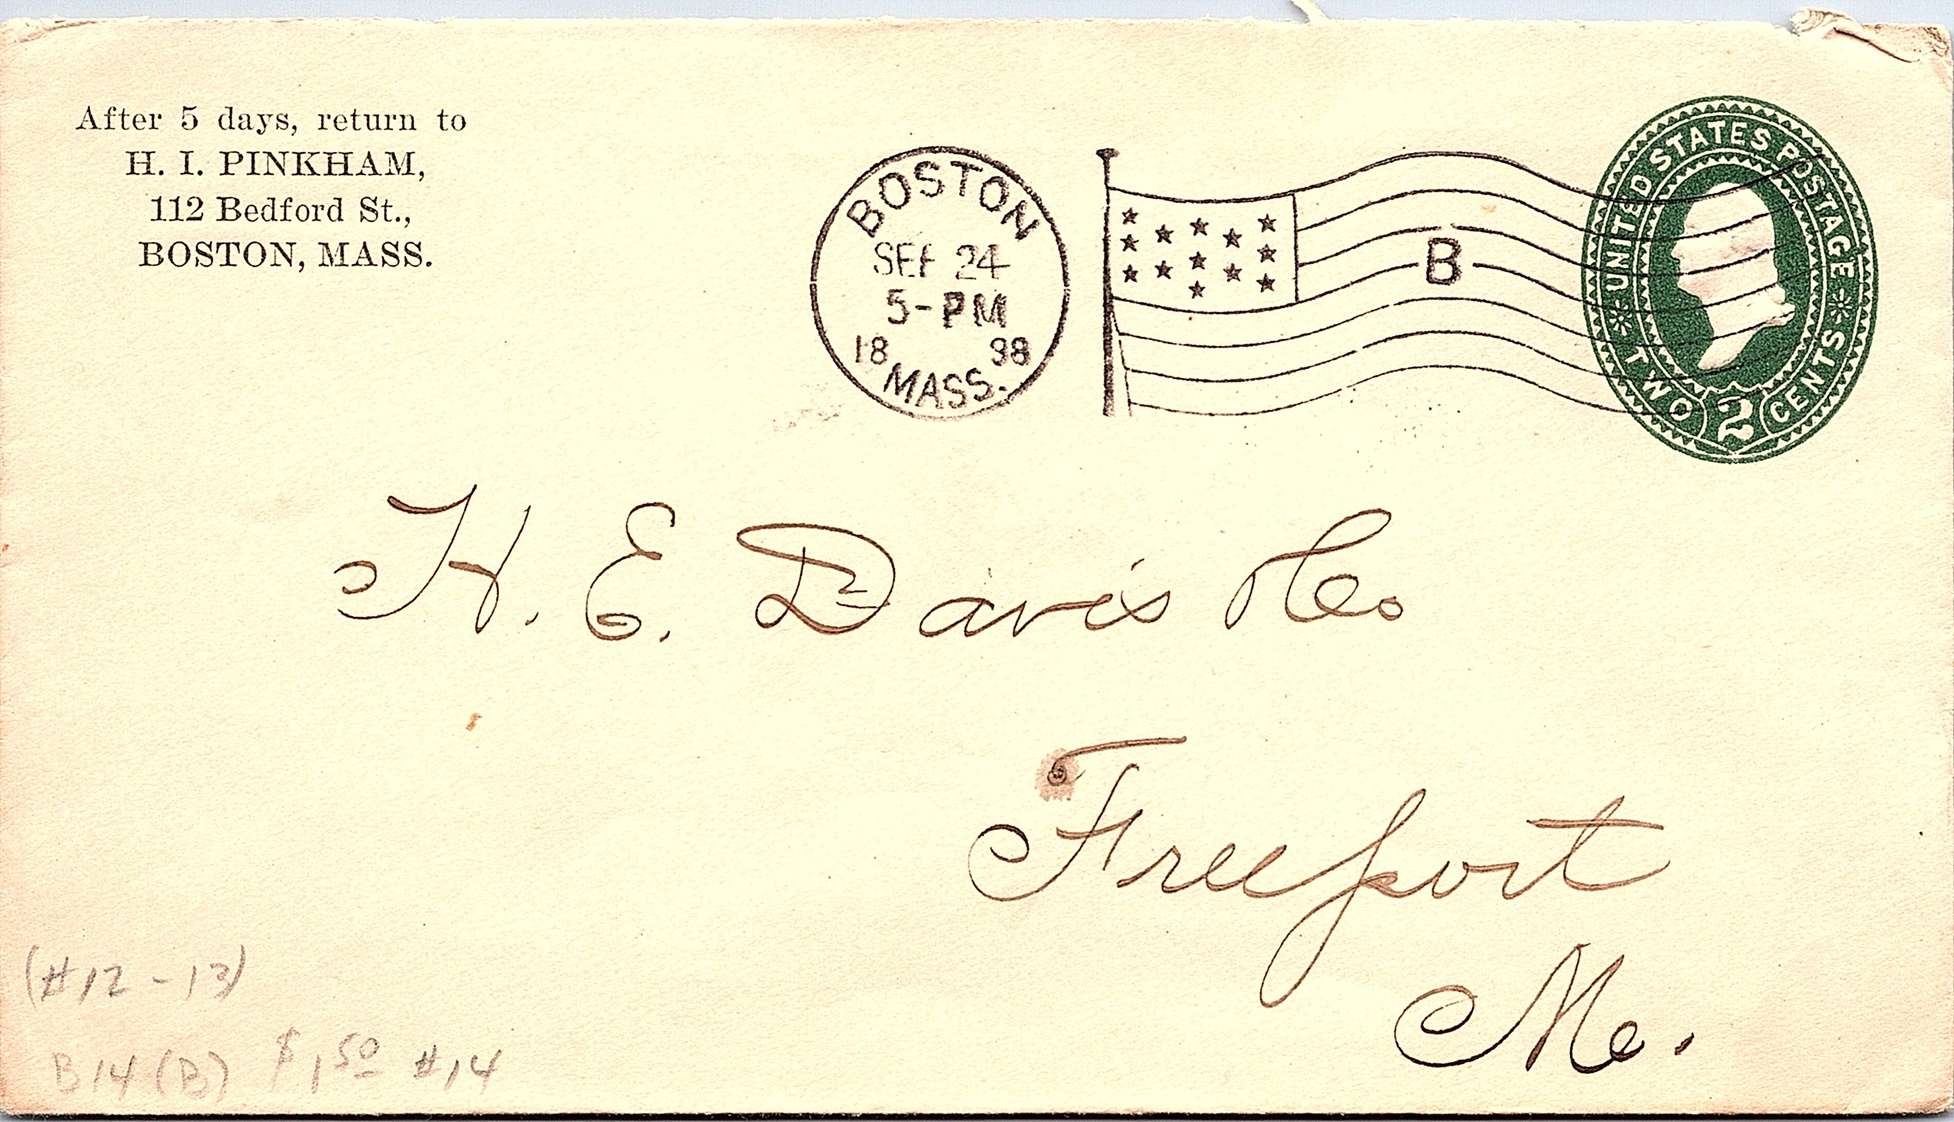 After 5 days, return to
H. I. PINKHAM,
112 Bedford St.,
BOSTON, MASS.
BOSTON
SEP 24
5-PM
18 98
MASS.
B
UNITED STATES POSTAGE
TWO 2 CENTS
H. E. Davis Co
Freeport
Me.
(#12-13)
B14 (B) $1.50 #14